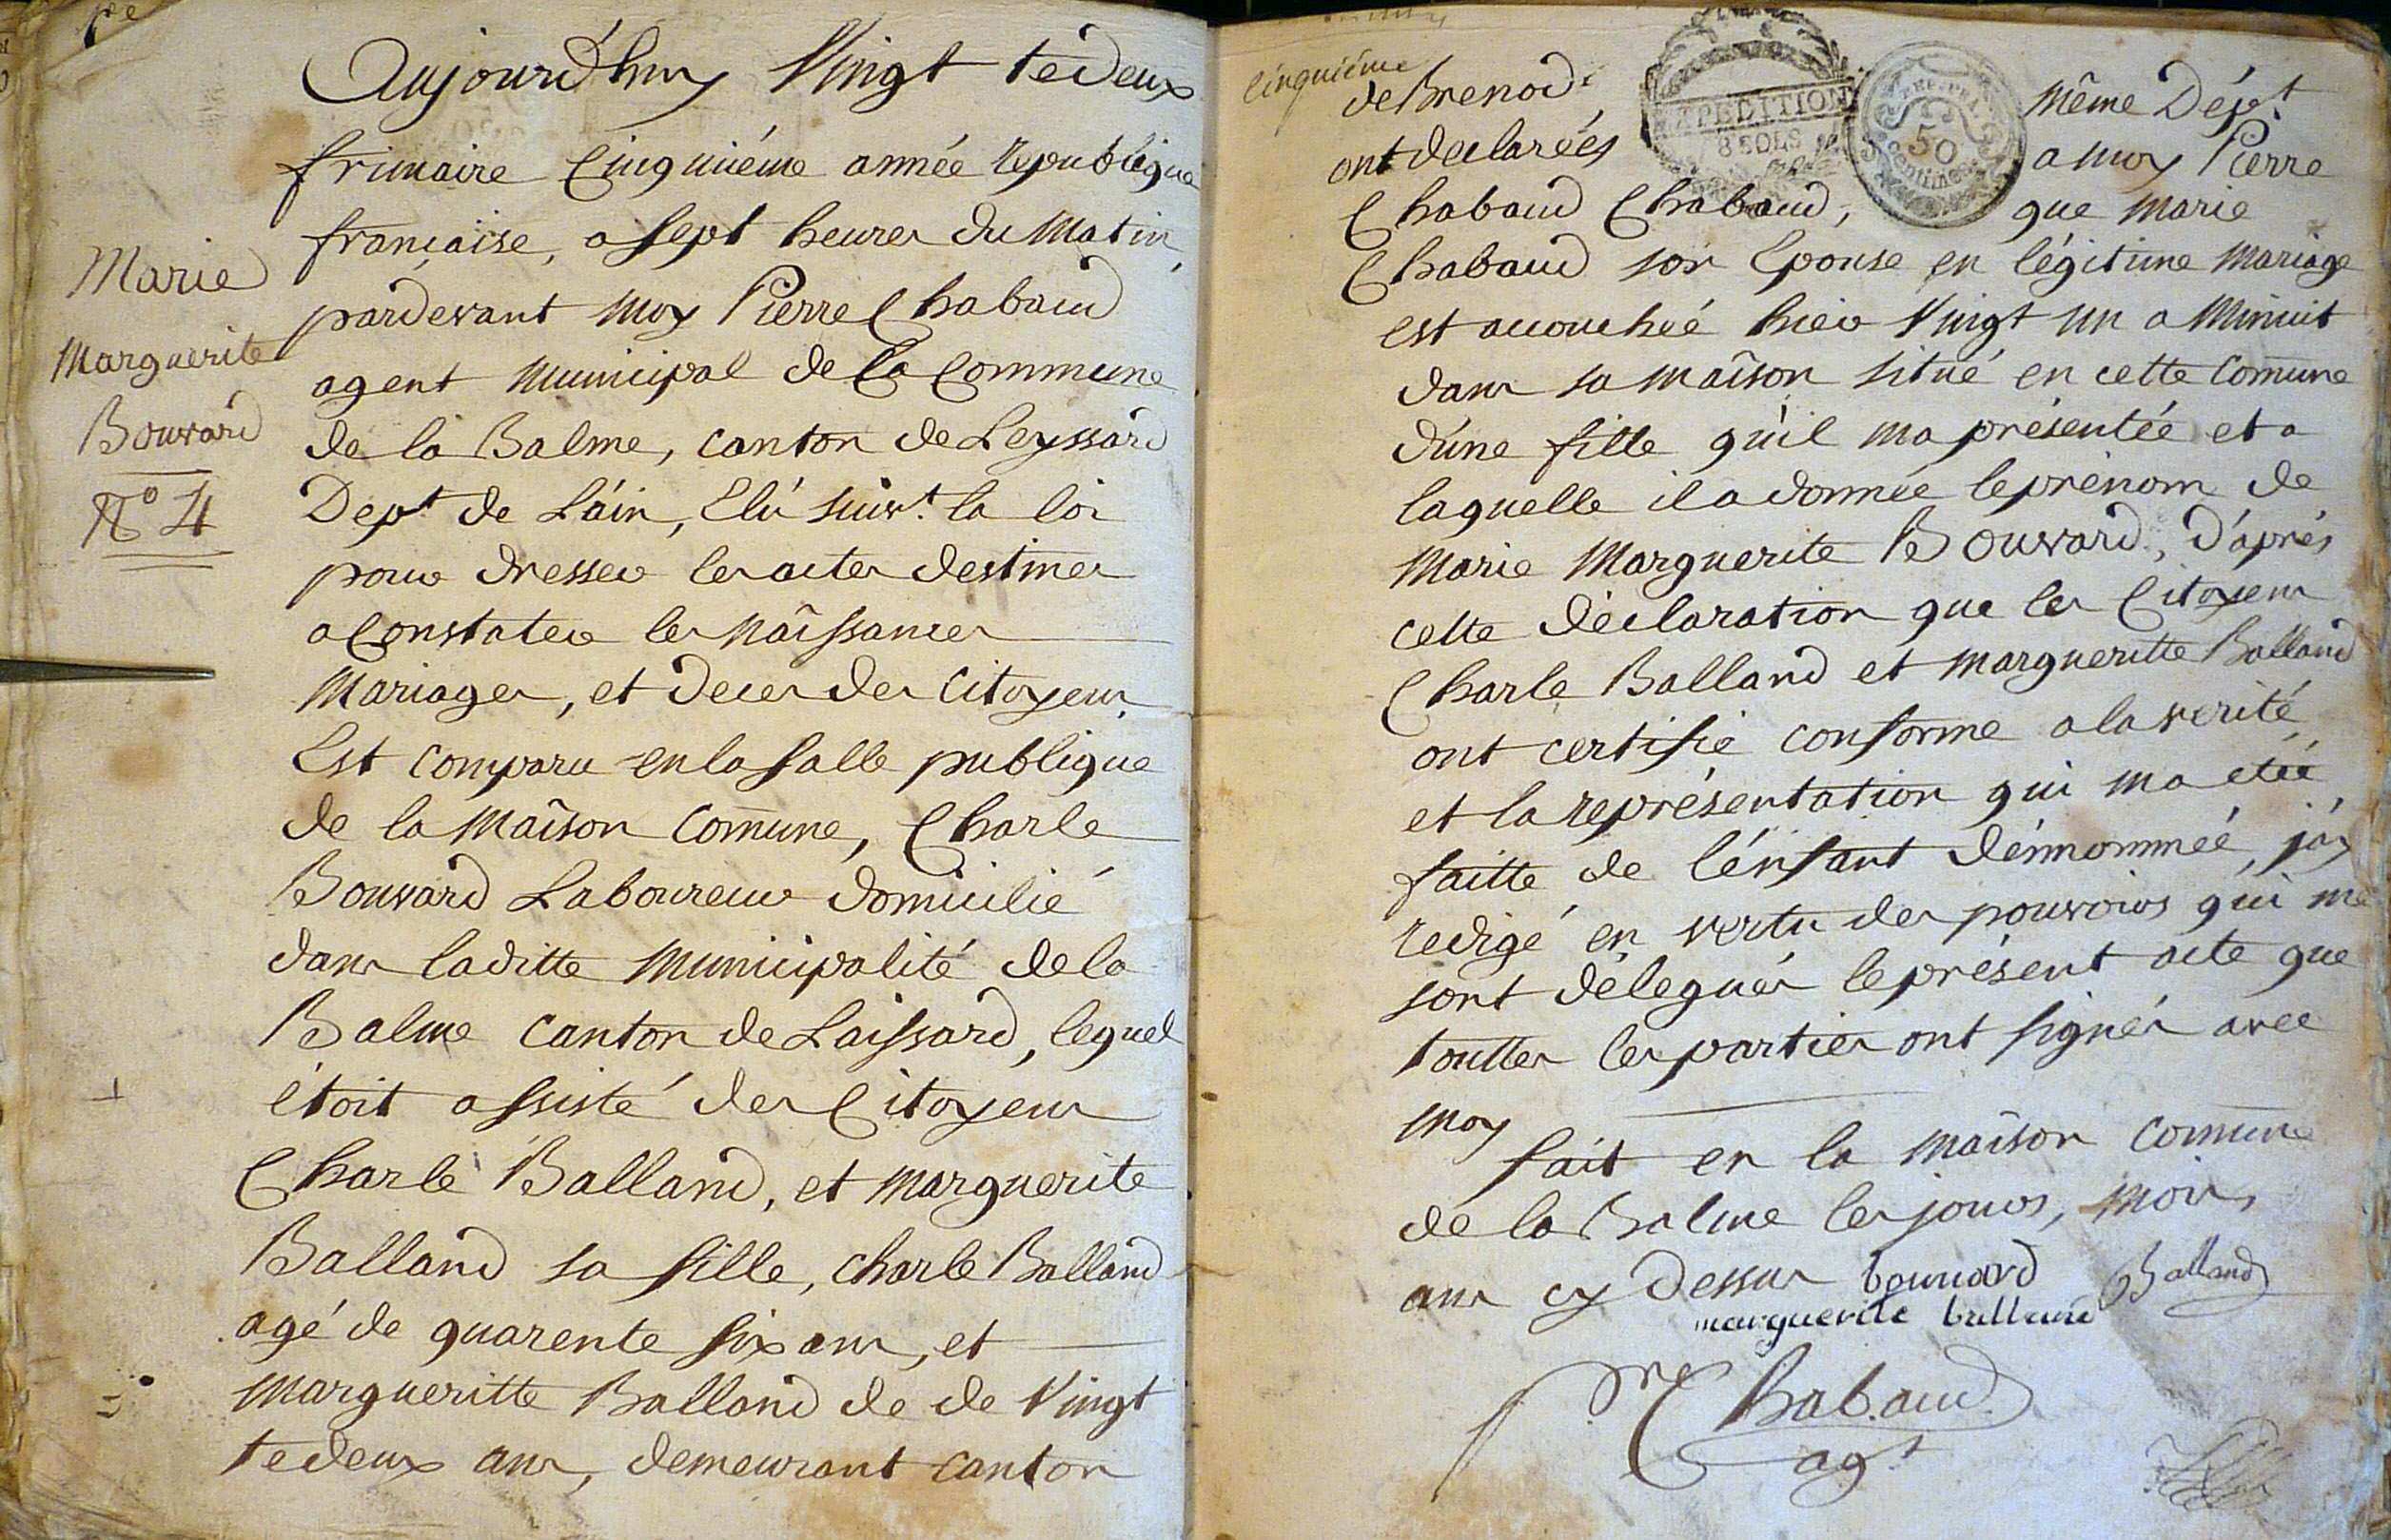 Marie
Marguerite
Bouvard
N° 4
Aujourd'huy Vingt tedeux
frimaire Cinquiéme année republique
françaïse, a sept heures du Matin,
pardevant moy Pierre Chabaud
agent municipal de la Commune
de la Balme, canton de Leyssard
Dept de L'áin, Elú suivt. la loi
pour dresser les actes destines
a Constater les Naîssances
Mariages, et deces des Citoyens.
Est comparu en la salle publique
de la Maîson Com̄une, Charle
Bouvard Laboureur domicilié
dans laditte Municipalité de la
Balme canton de Laissard, lequel
étoit assisté des Citoyens
Charle Balland, et Marguerite
Balland sa fille, Charle Balland
agé de quarente six ans, et
Margueritte Balland de de Vingt
tedeux ans, demeurant canton
Cinquiéme
de Brenod même Dépt
ont declarées a moy Pierre
Chabaud Chabaud, que Marie
Chabaud son Epouse en légitime Mariage
est accouchée hier Vingt un a Minuit
dans sa maîson situé en cette Com̄une
d'une fille qu'il ma présentée et a
laquelle il a donnée le prénom de
Marie Marguerite Bouvard, d'áprés
cette déclaration que les Citoyens
Charle Balland et Margueritte Balland
ont certifié conforme a la verité
et la représentation qui ma étée
faitte de l'énfant dénnommée, j'áy
redigé en vertu des pouvoirs qui me
sont délegués le présent acte que
touttes les parties ont signés avec
moy
fait en la maîson com̄une
de la Balme les jours, mois,
ans cy dessus bouvard Balland
marguerite balland
Chabaud
agt
EXPEDITION
8 SOLS
REP. FRA.
50
centimes